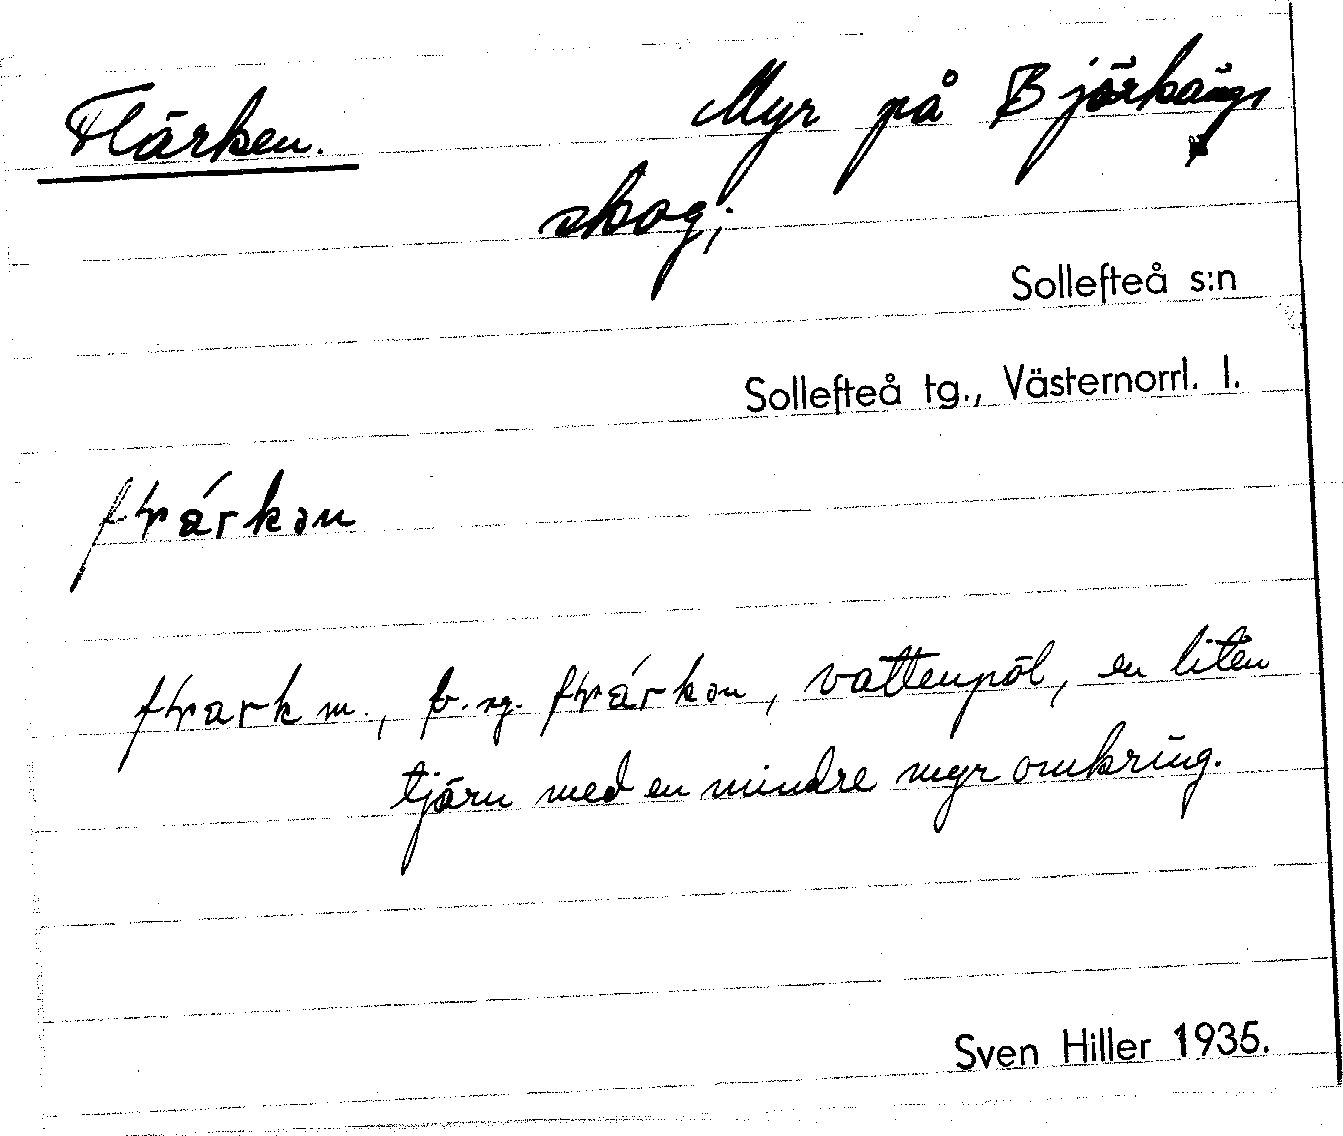 Flärken. Myr på Björkängs
skog;
Sollefteå s:n
Sollefteå tg., Västernorrl. l.
vattenpöl, en liten
tjärn med en mindre myr omkring.
Sven Hiller 1935.